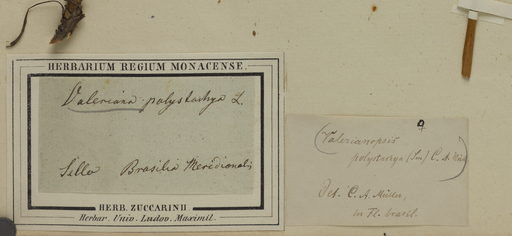 HERBARIUM REGIUM MONACENSE.
Valeriana polystachya L.
Sello Brasilia Meridionalis
HERB. ZUCCARINII
Herbar. Univ. Ludov. Maximil.
♀
(Valerianopsis
polystachya (Sm) C. A. Müll)
Det. C. A. Müller,
in Fl. brasil.